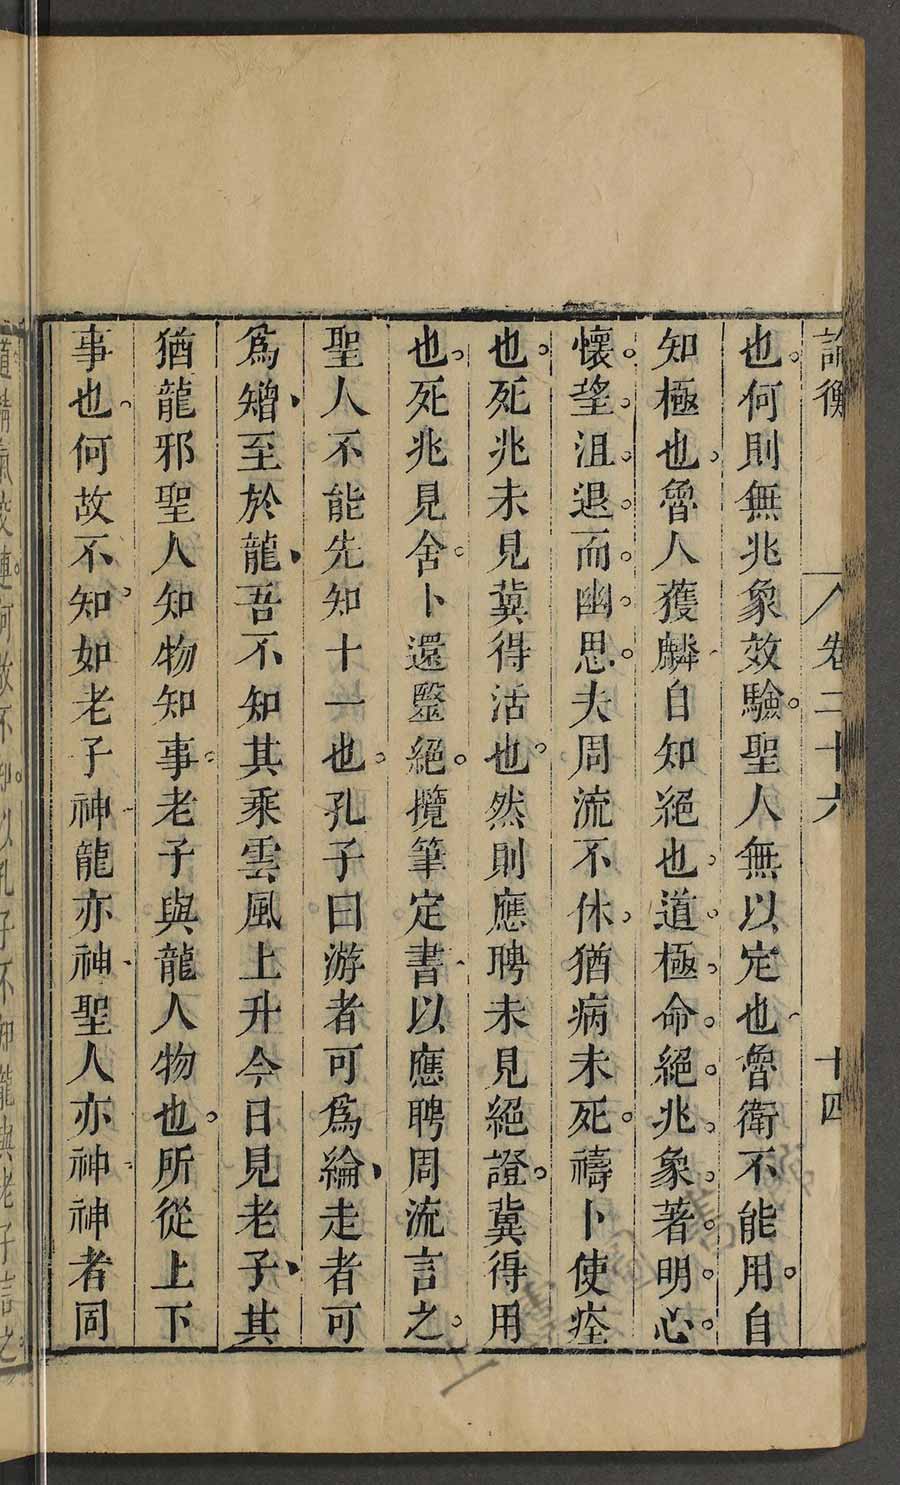 論衡 卷二十六 十四
也。何則無兆象效驗。聖人無以定也、魯衛不能用。自
知極也、魯人獲麟、自知絕也、道。極、命。絕。兆、象。著。明。心。
懷。望。沮、退。而。幽。思。夫周流不休、猶病未死。禱卜使痊
也。死兆未見冀得活也。然則應聘未見絕證。冀得用
也。死兆見舍。卜還毉絕。攬筆定書、以應聘周流言之。
聖人不能先知十一也。孔子曰游者可爲綸、走者可
爲矰、至於龍、吾不知其乘雲風上升今日見老子、其
猶龍邪聖人知物知事。老子與龍人物也。所從上下
事也、何故不知。如老子神、龍亦神、聖人亦神、神者同